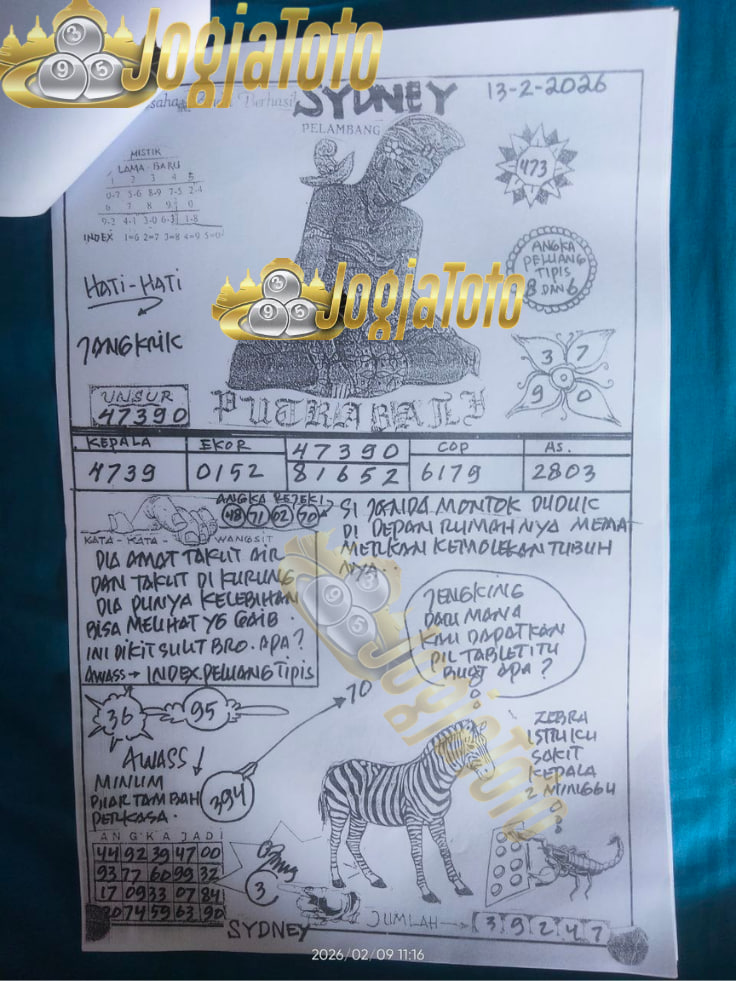 JogjaToto
SYDNEY
13-2-2026
Berhasil
PELAMBANG
MISTIK
LAMA - BARU
1 2 3 4 5
0-7 5-6 8-9 7-5 2-4
6 7 8 9 0
9-2 4-1 3-0 6-3 1-8
INDEX 1=6 2=7 3=8 4=9 5=0
473
ANGKA
PELUANG
TIPIS
8 DAN 6
HATI-HATI
JANGKRIK
JogjaToto
3 7
9 0
UNSUR
47390
PUTRA BALI
KEPALA EKOR 47390 COP AS.
4739 0152 81652 6179 2803
ANGKA REJEKI
48 71 02 70
KATA - KATA - WANGSIT
DIA AMAT TAKUT AIR
DAN TAKUT DI KURUNG
DIA PUNYA KELEBIHAN
BISA MELIHAT YG GAIB.
INI DIKIT SULIT BRO. APA?
AWASS → INDEX PELUANG TIPIS
SI JANDA MONTOK DUDUK
DI DEPAN RUMAHNYA MEMA
MERKAN KEMOLEKAN TUBUH
NYA.
JENGKING
DARI MANA
KAU DAPATKAN
PIL TABLET ITU
BUAT APA?
JogjaToto
36 95
70
AWASS
394
MINUM
PILAR TAMBAH
PERKASA.
ZEBRA
ISTRIKU
SAKIT
KEPALA
2 MINGGU
ANGKA JADI
44 92 39 47 00
93 77 60 99 32
17 09 33 07 84
20 74 59 63 90
3
SYDNEY
JUMLAH → 3 9 2 4 7
2026/02/09 11:16